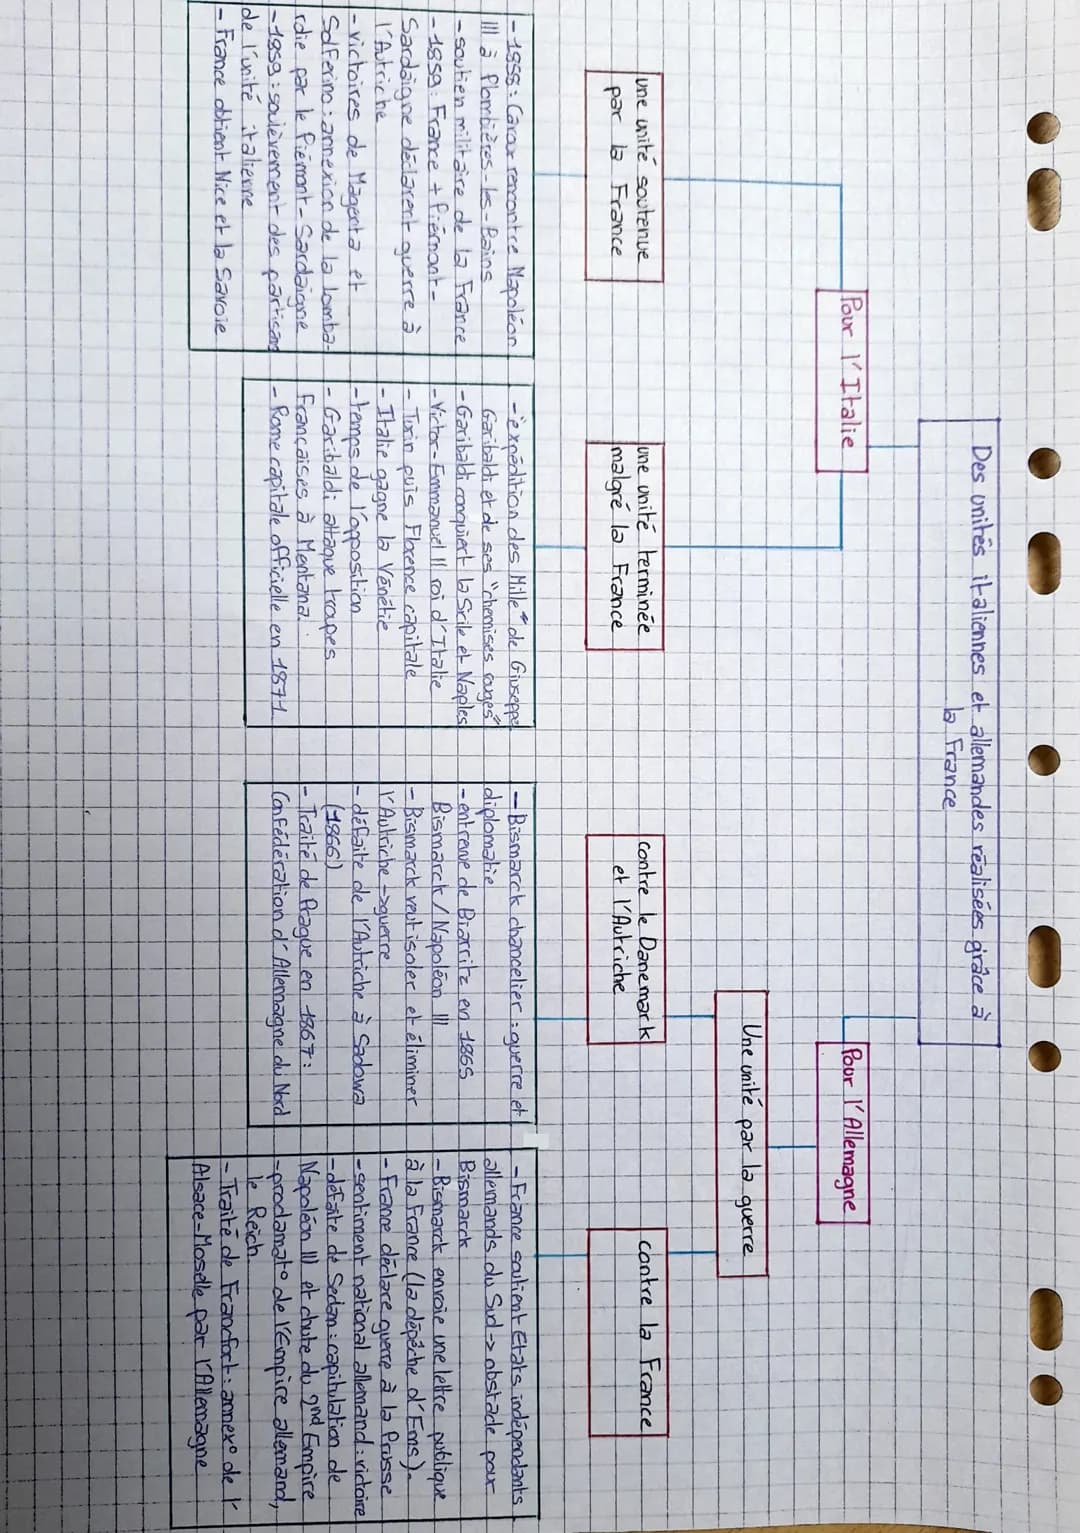 Des unités italiennes et allemandes réalisées grâce à
la France
Pour l'Italie
Pour l'Allemagne
Une unité par la guerre
une unité soutenue
par la France
une unité terminée
malgré la France
contre le Danemark
et l'Autriche
contre la France
- 1858 : Cavour rencontre Napoléon
III à Plombières-les-Bains
- soutien militaire de la France
- 1859 : France + Piémont-
Sardaigne déclarent guerre à
l'Autriche
- victoires de Magenta et
Solferino : annexion de la Lomba-
rdie par le Piémont-Sardaigne
- 1859 : soulèvement des partisans
de l'unité italienne
- France obtient Nice et la Savoie
- "expédition des Mille" de Giuseppe
Garibaldi et de ses "chemises rouges"
- Garibaldi conquiert la Sicile et Naples
- Victor-Emmanuel II roi d'Italie
- Turin puis Florence capitale
- Italie gagne la Vénétie
- temps de l'opposition
- Garibaldi attaque troupes
Françaises à Mentana.
- Rome capitale officielle en 1871.
- Bismarck chancelier : guerre et
diplomatie
- entrevue de Biarritz en 1865
Bismarck / Napoléon III
- Bismarck veut isoler et éliminer
l'Autriche -> guerre
- défaite de l'Autriche à Sadowa
(1866)
- Traité de Prague en 1867 :
Confédération d'Allemagne du Nord
- France soutient Etats indépendants
allemands du Sud -> obstacle pour
Bismarck
- Bismarck envoie une lettre publique
à la France (la dépêche d'Ems).
- France déclare guerre à la Prusse
- sentiment national allemand : victoire
- défaite de Sedan : capitulation de
Napoléon III et chute du 2nd Empire
- proclamat° de l'Empire allemand,
le Reich.
- Traité de Francfort : annex° de l'
Alsace-Moselle par l'Allemagne